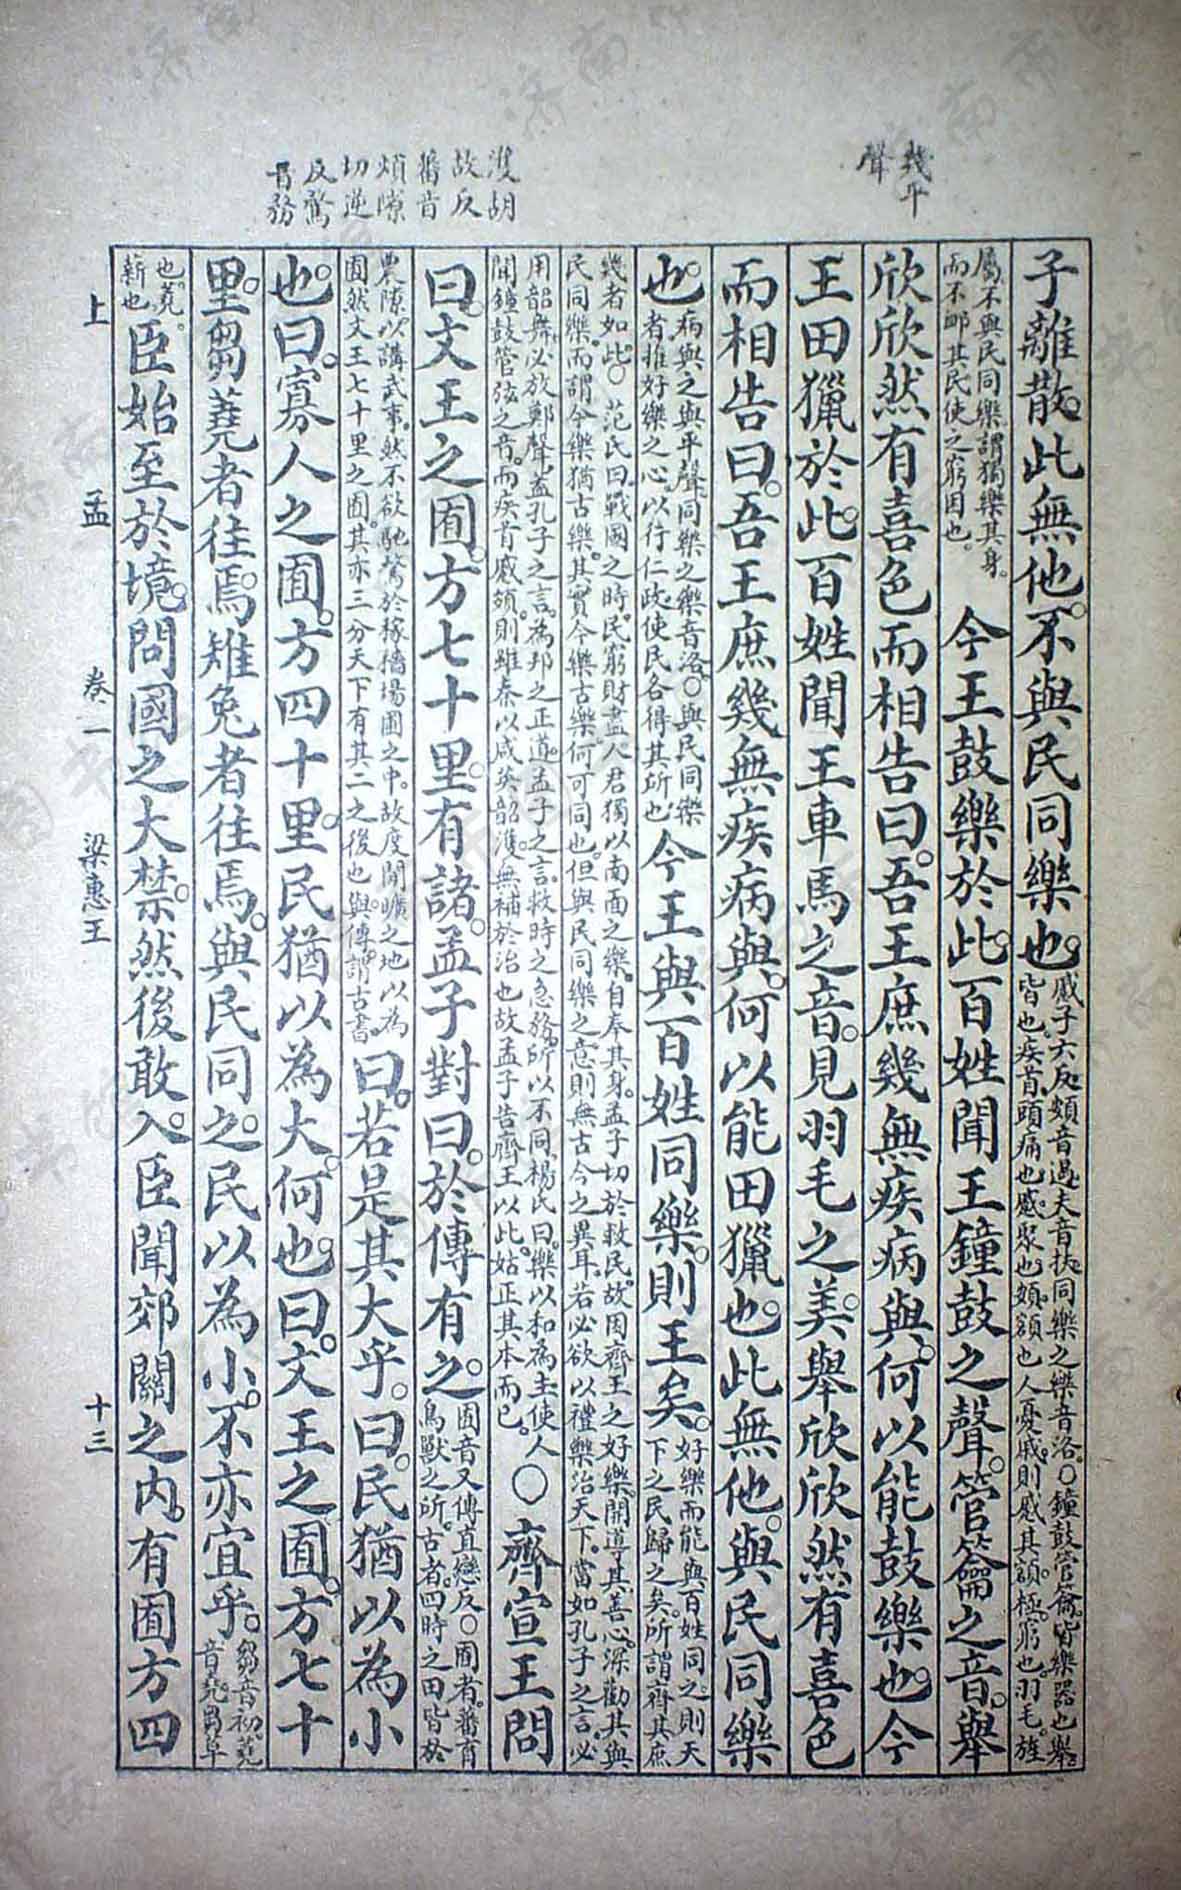 幾平
聲
濩胡
故反
蕃音
煩隙
切逆
反騖
音務
子離散。此無他。不與民同樂也。
蹙子六反。頞音遏。夫音扶。同樂之樂音洛。○鐘鼓管籥。皆樂器也。舉
皆也。疾首。頭痛也。蹙。聚也。頞。額也。人憂戚。則蹙其額。極。窮也。羽毛。旌
屬。不與民同樂。謂獨樂其身。
而不卹其民。使之窮困也。
今王鼓樂於此。百姓聞王鐘鼓之聲。管籥之音。舉
欣欣然有喜色而相告曰。吾王庶幾無疾病與。何以能鼓樂也。今
王田獵於此。百姓聞王車馬之音。見羽毛之美。舉欣欣然有喜色
而相告曰。吾王庶幾無疾病與。何以能田獵也。此無他。與民同樂
也。
病與之與平聲。同樂之樂音洛。○與民同樂
者。推好樂之心。以行仁政。使民各得其所也
今王與百姓同樂。則王矣。
好樂而能與百姓同之。則天
下之民歸之矣。所謂齊其庶
幾者如此。○范氏曰。戰國之時。民窮財盡。人君獨以南面之樂。自奉其身。孟子切於救民。故因齊王之好樂。開導其善心。深勸其與
民同樂。而謂今樂猶古樂。其實今樂古樂。何可同也。但與民同樂之意。則無古今之異耳。若必欲以禮樂治天下。當如孔子之言。必
用韶舞。必放鄭聲。蓋孔子之言。為邦之正道。孟子之言。救時之急務。所以不同。楊氏曰。樂以和為主。使人
聞鐘鼓管弦之音。而疾首蹙頞。則雖奏以咸英韶濩。無補於治也。故孟子告齊王以此。姑正其本而已。
○齊宣王問
曰。文王之囿。方七十里。有諸。孟子對曰。於傳有之。
囿音又。傳直戀反。○囿者。蕃育
鳥獸之所。古者。四時之田。皆於
農隙。以講武事。然不欲馳騖於稼穡場圃之中。故度閒曠之地以為
囿。然文王七十里之囿。其亦三分天下有其二之後也與。傳。謂古書。
曰。若是其大乎。曰。民猶以為小
也。曰。寡人之囿。方四十里。民猶以為大。何也。曰。文王之囿。方七十
里。芻蕘者往焉。雉兔者往焉。與民同之。民以為小。不亦宜乎。
芻音初。蕘
音堯。芻。草
也。蕘。
薪也
臣始至於境。問國之大禁。然後敢入。臣聞郊關之內。有囿方四
上 孟 卷一 梁惠王 十三